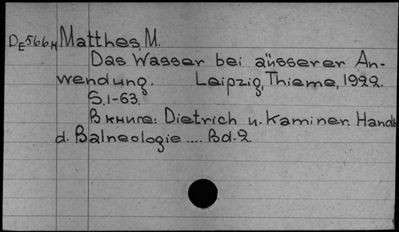 DE566M Matthes, M.
Das Wasser bei äusserer An-
wendung. Leipzig, Thieme, 1922.
S.1-63.
В книге: Dietrich u. Kaminer. Handb
d. Balneologie .... Bd.2.